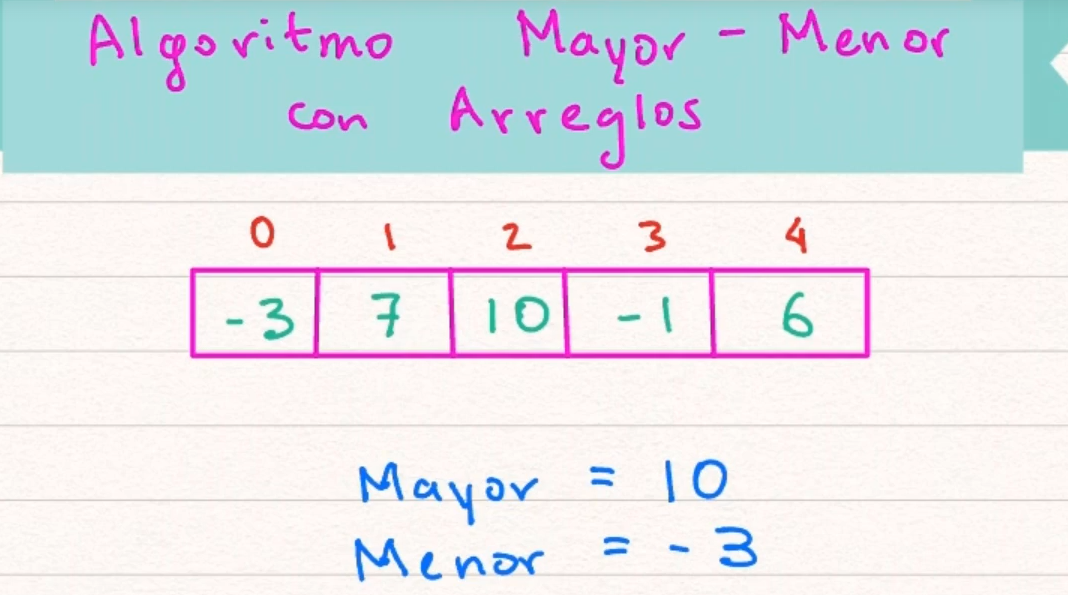 Algoritmo Mayor - Menor
con Arreglos
0 1 2 3 4
-3 7 10 -1 6
Mayor = 10
Menor = -3